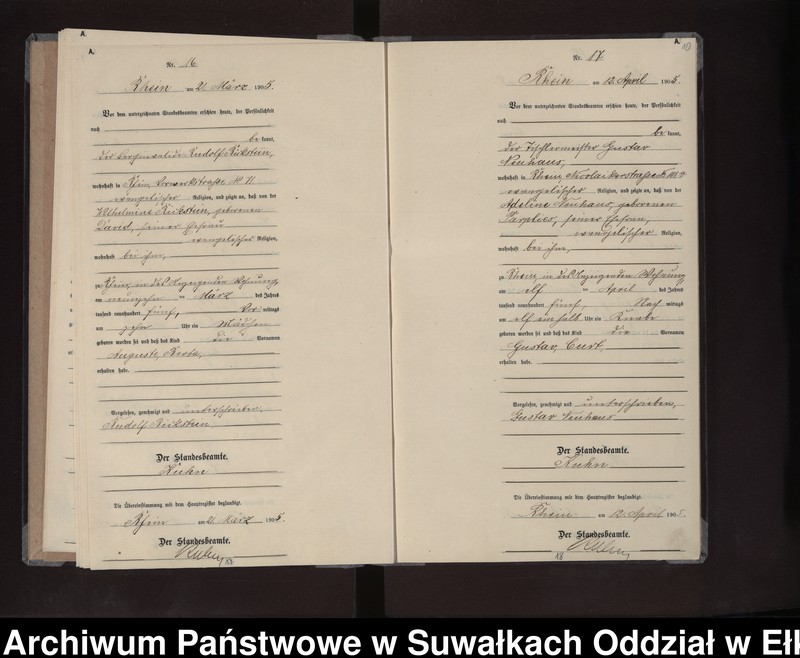 A.
A.
Nr. 16
Rhein am 21. März 1905.
Vor dem unterzeichneten Standesbeamten erschien heute, der Persönlichkeit
nach
be kannt,
der Rudolf Rickstein,
wohnhaft in Rhein, Vorwerkstraße № 11
evangelischer Religion, und zeigte an, daß von der
Wilhelmine Rickstein, geborenen
David, seiner Ehefrau
evangelischer Religion,
wohnhaft bei ihm,
zu Rhein, in der Wohnung,
am neunzehn ten März des Jahres
tausend neunhundert fünf, Vor mittags
um zehn Uhr ein Mädchen
geboren worden sei und daß das Kind die Vornamen
Auguste,
erhalten habe.
Vorgelesen, genehmigt und unterschrieben.
Rudolf Rickstein
Der Standesbeamte.
Kuhn
Die Übereinstimmung mit dem Hauptregister beglaubigt.
Rhein am 21. März 1905.
Der Standesbeamte.
Kuhn
A.
10
Nr. 17
Rhein am 12. April 1905.
Vor dem unterzeichneten Standesbeamten erschien heute, der Persönlichkeit
nach
be kannt,
der Tischlermeister Gustav
Neuhaus,
wohnhaft in Rhein, Nikolaikerstraße
evangelischer Religion, und zeigte an, daß von der
Adeline Neuhaus, geborenen
seiner Ehefrau,
evangelischer Religion,
wohnhaft bei ihm,
zu Rhein, in der Wohnung,
am elf ten April des Jahres
tausend neunhundert fünf, Nach mittags
um elf einhalb Uhr ein Knabe
geboren worden sei und daß das Kind die Vornamen
Gustav, Curt,
erhalten habe.
Vorgelesen, genehmigt und unterschrieben,
Gustav Neuhaus
Der Standesbeamte.
Kuhn
Die Übereinstimmung mit dem Hauptregister beglaubigt.
Rhein am 12. April 1905.
Der Standesbeamte.
Kuhn
18
Archiwum Państwowe w Suwałkach Oddział w Ełk